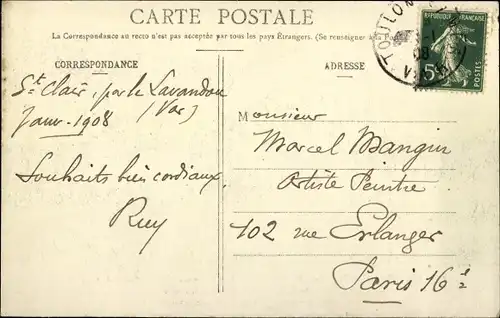 CARTE POSTALE
La Correspondance au recto n'est pas acceptée par tous les pays Étrangers. (Se renseigner à la Poste)
CORRESPONDANCE
ADRESSE
TOULON
RÉPUBLIQUE FRANÇAISE
5
St Clair, par le Lavandou
(Var)
Janv - 1908
Souhaits bien cordiaux
Ruy
Monsieur
Marcel Mangin
Artiste Peintre
102 rue Erlanger
Paris 16e